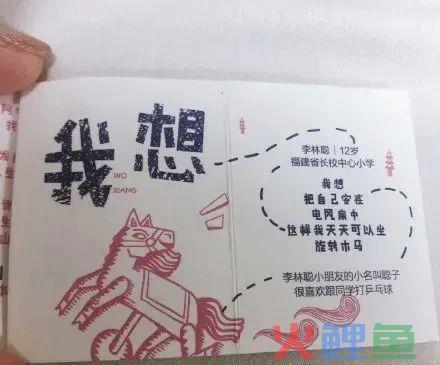 我想
WO
XIANG
李林聪｜12岁
福建省长校中心小学
我想
把自己安在
电风扇中
这样我天天可以坐
旋转市马
李林聪小朋友的小名叫聪子
很喜欢跟同学打乒乓球
火鲤鱼